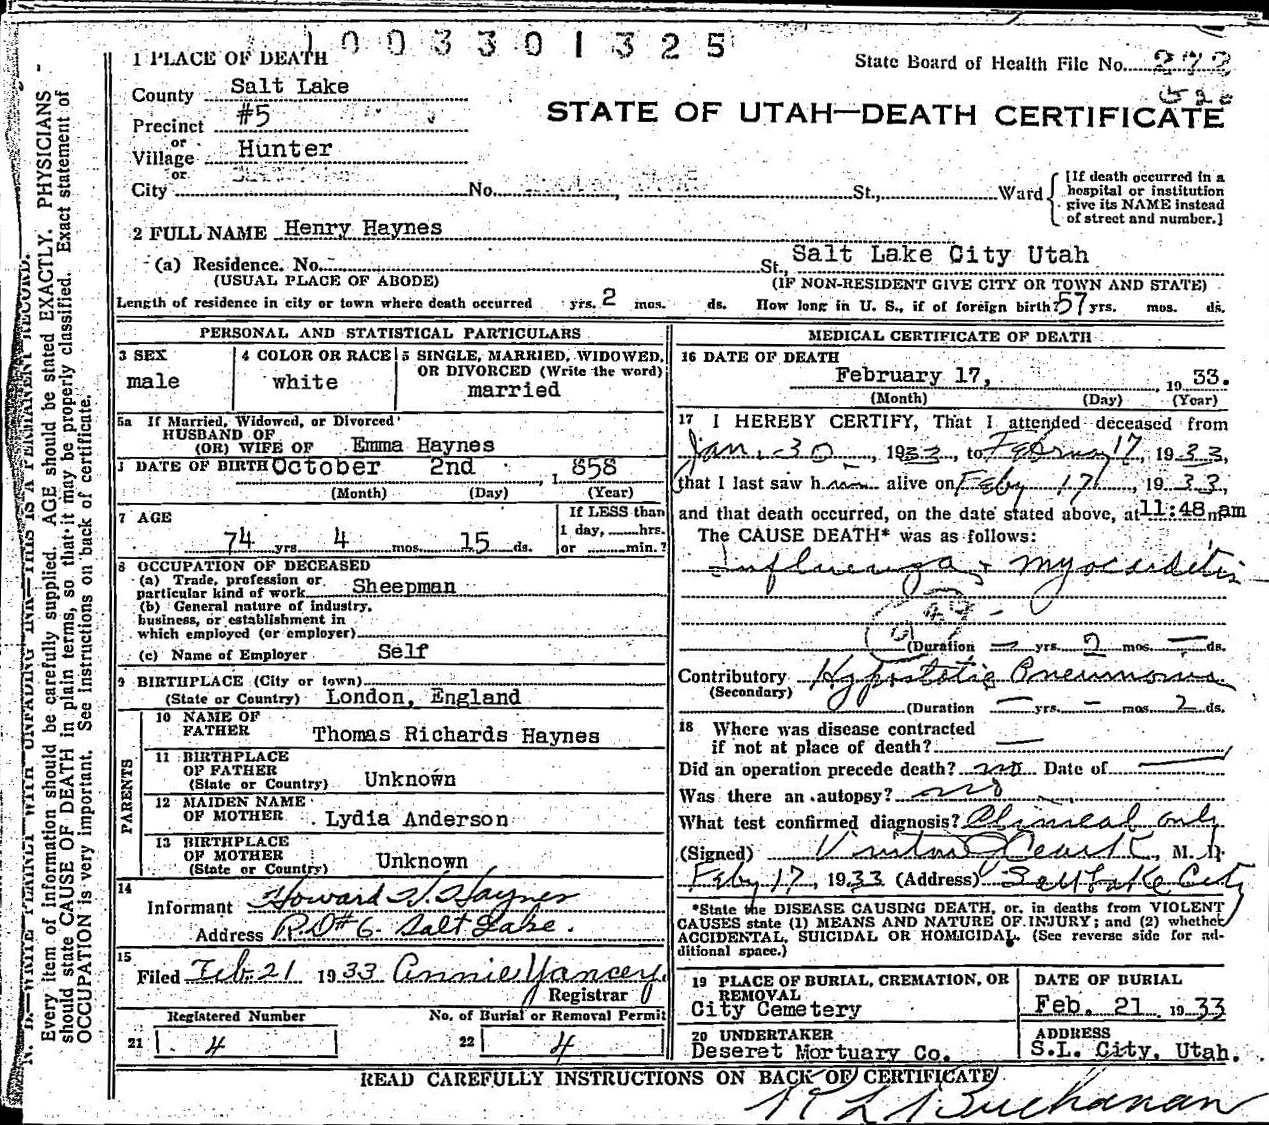 1003301325
1 PLACE OF DEATH
State Board of Health File No. 272
County Salt Lake
Precinct #5
STATE OF UTAH—DEATH CERTIFICATE
or
Village Hunter
or
City No. St., Ward
[If death occurred in a
hospital or institution
give its NAME instead
of street and number.]
2 FULL NAME Henry Haynes
(a) Residence. No. St., Salt Lake City Utah
(USUAL PLACE OF ABODE) (IF NON-RESIDENT GIVE CITY OR TOWN AND STATE)
Length of residence in city or town where death occurred yrs. 2 mos. ds. How long in U. S., if of foreign birth? 57 yrs. mos. ds.
PERSONAL AND STATISTICAL PARTICULARS
3 SEX
male
4 COLOR OR RACE
white
5 SINGLE, MARRIED, WIDOWED,
OR DIVORCED (Write the word)
married
5a If Married, Widowed, or Divorced
HUSBAND OF
(OR) WIFE OF Emma Haynes
DATE OF BIRTH October 2nd, 1858
(Month) (Day) (Year)
7 AGE
74 yrs 4 mos. 15 ds.
If LESS than
1 day, hrs.
or min.?
8 OCCUPATION OF DECEASED
(a) Trade, profession or
particular kind of work Sheepman
(b) General nature of industry,
business, or establishment in
which employed (or employer)
(c) Name of Employer Self
9 BIRTHPLACE (City or town)
(State or Country) London, England
PARENTS
10 NAME OF
FATHER Thomas Richards Haynes
11 BIRTHPLACE
OF FATHER
(State or Country) Unknown
12 MAIDEN NAME
OF MOTHER Lydia Anderson
13 BIRTHPLACE
OF MOTHER
(State or Country) Unknown
14
Informant Howard H. Haynes
Address R.D #6. Salt Lake.
15
Filed Feb. 21 1933 Annie Yancey.
Registrar
Registered Number No. of Burial or Removal Permit
21 4 22 4
MEDICAL CERTIFICATE OF DEATH
16 DATE OF DEATH
February 17, 1933.
(Month) (Day) (Year)
17 I HEREBY CERTIFY, That I attended deceased from
Jan. 30, 1933, to Februay 17, 1933,
that I last saw him alive on Feby 17, 1933,
and that death occurred, on the date stated above, at 11:48 m am
The CAUSE DEATH* was as follows:
Influenza & myocarditis
(Duration — yrs. 2 mos. — ds.
Contributory Hypostatic Pneumonia
(Secondary)
(Duration — yrs. — mos. 2 ds.
18 Where was disease contracted
if not at place of death? —
Did an operation precede death? no Date of —
Was there an autopsy? no
What test confirmed diagnosis? Clinical only
(Signed) , M. D.
Feby 17, 1933 (Address) Salt Lake City
*State the DISEASE CAUSING DEATH, or, in deaths from VIOLENT
CAUSES state (1) MEANS AND NATURE OF INJURY; and (2) whether
ACCIDENTAL, SUICIDAL OR HOMICIDAL. (See reverse side for ad-
ditional space.)
19 PLACE OF BURIAL, CREMATION, OR
REMOVAL
City Cemetery
DATE OF BURIAL
Feb. 21 1933
20 UNDERTAKER
Deseret Mortuary Co.
ADDRESS
S.L. City, Utah.
READ CAREFULLY INSTRUCTIONS ON BACK OF CERTIFICATE
R L Buchanan
N. B.—WRITE PLAINLY WITH UNFADING INK—THIS IS A PERMANENT RECORD.
Every item of information should be carefully supplied. AGE should be stated EXACTLY. PHYSICIANS
should state CAUSE OF DEATH in plain terms, so that it may be properly classified. Exact statement of
OCCUPATION is very important. See instructions on back of certificate.